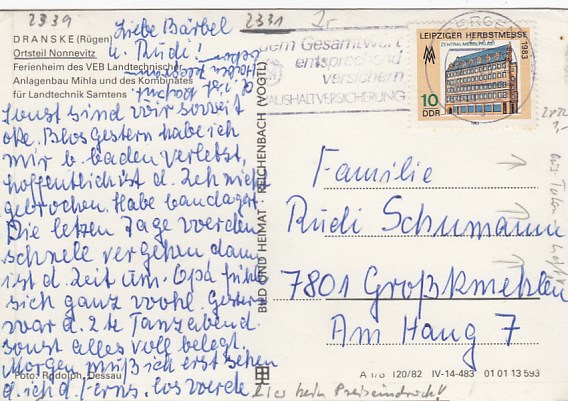 2339
2331
DRANSKE (Rügen)
Ortsteil Nonnevitz
Ferienheim des VEB Landtechnischer
Anlagenbau Mihla und des Kombinates
für Landtechnik Samtens
Liebe Bärbel
u. Rudi!
Sonst sind wir soweit
oke. Blos gestern habe ich
mir b. baden verletzt,
hoffentlich ist d. Zeh nich
gebrochen. Habe bandagert.
Die letzen Tage werden
schnele vergehen dann
ist d. Zeit um. Opa fühlt
sich ganz wohl. Gestern
war d. 2te Tanzabend.
sonst alles voll belegt.
Morgen muß ich erst sehen
d. ich d. Ferns. los werde
Foto: Rudolph, Dessau
BILD UND HEIMAT REICHENBACH (VOGTL)
dem Gesamtwert
entsprechend
versichern
HAUSHALTVERSICHERUNG
LEIPZIGER HERBSTMESSE
1983
ZENTRALMESSEPALAST
10
DDR
Familie
Rudi Schumann
7801 Großkmehlen
Am Hang 7
A 1/B 120/82 IV-14-483 01 01 13 593